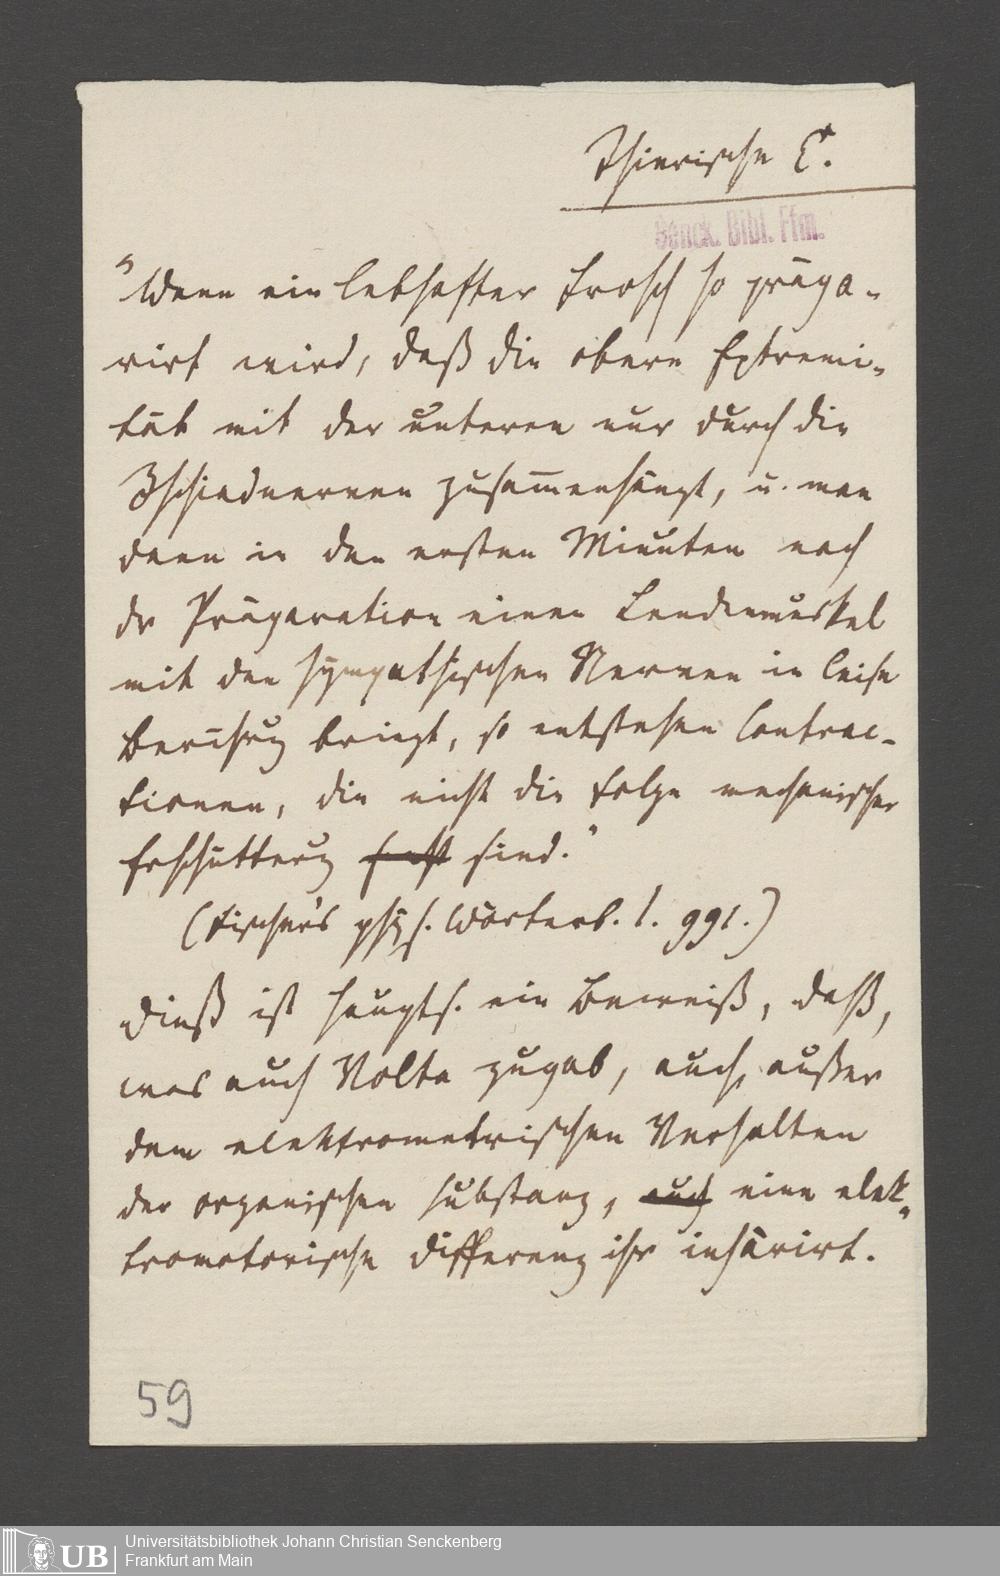 Thierische E.
Senck. Bibl. Ffm.
"Wenn ein lebhafter Frosch so präpa-
rirt wird, daß die obere Extremi-
tät mit der unteren nur durch die
Ischiadnerven zusam̄enhängt, u. man
dann in den ersten Minuten nach
dr Präparation einen Lendenmuskel
mit den sympathischen Nerven in leise
Berührug bringt, so entstehen Contrac-
tionen, die nicht die Folge mechanischer
Erschütterug sind."
(Fischer's phys. Wörterb. 1. 991.)
Dieß ist haupts. ein Beweiß, daß,
was auch Volta zugab, auch, außer
dem elektrometrischen Verhalten
der organischen Substanz, auch eine elek-
tromotorische Differenz ihr inhärirt.
59
UB
Universitätsbibliothek Johann Christian Senckenberg
Frankfurt am Main